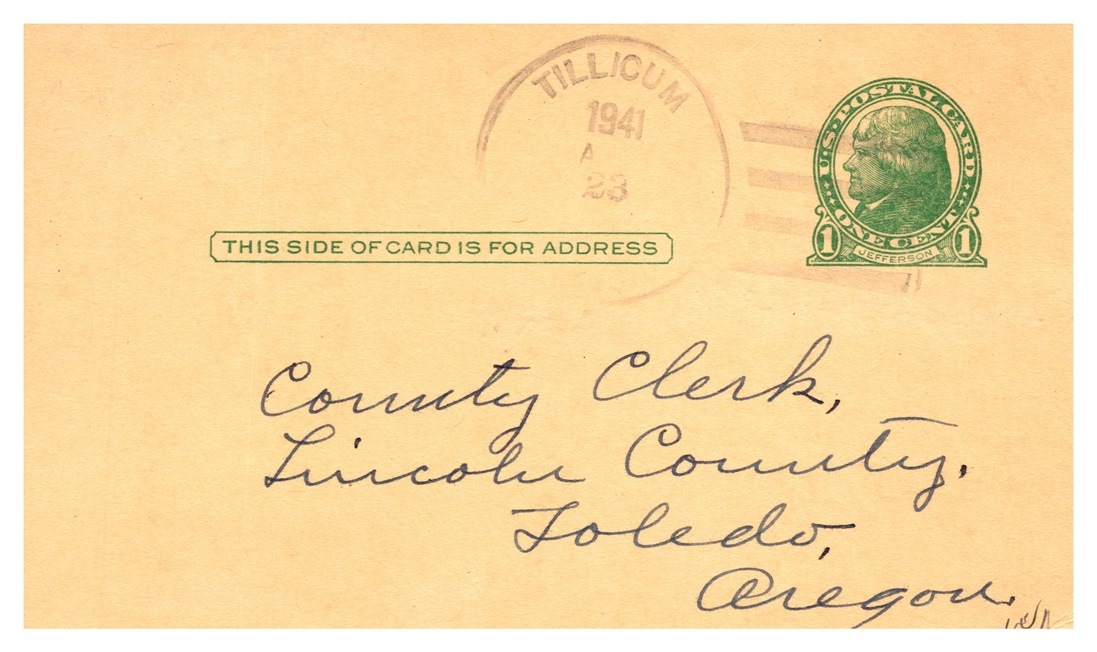 TILLICUM
1941
A
23
U.S. POSTAL CARD
ONE CENT
1 JEFFERSON 1
THIS SIDE OF CARD IS FOR ADDRESS
County Clerk,
Lincoln County,
Toledo,
Oregon.